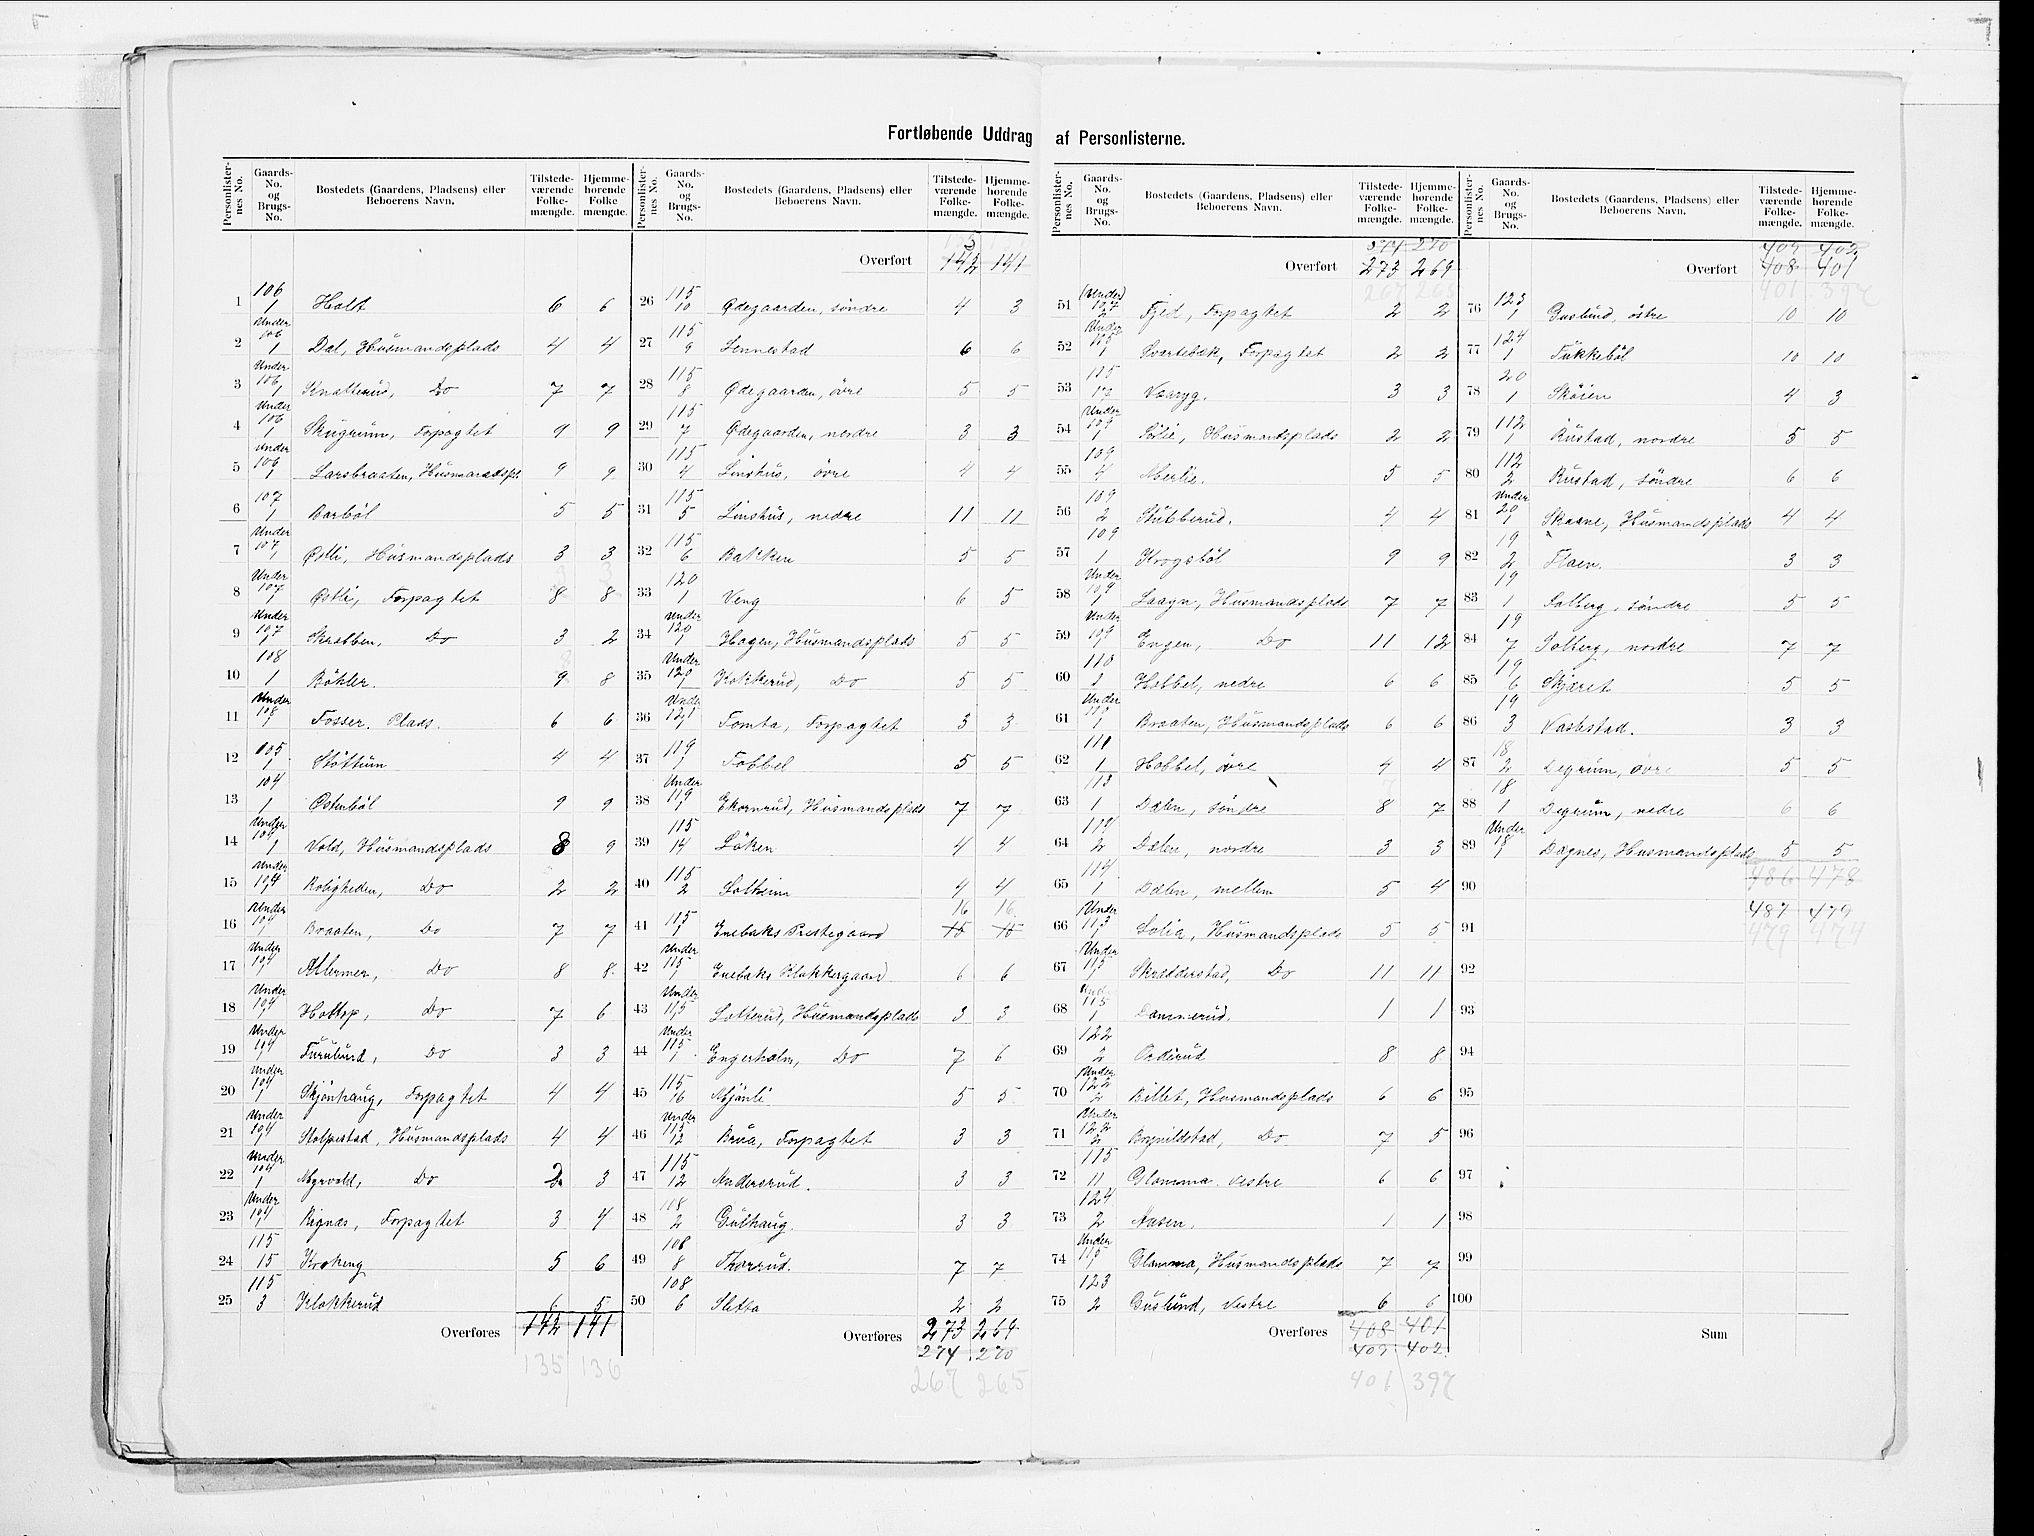 Fortløbende Uddrag af Personlisterne.
Personlisternes No. | Gaards-No. og Brugs-No. | Bostedets (Gaardens, Pladsens) eller Beboerens Navn. | Tilstedeværende Folkemængde. | Hjemmehørende Folkemængde.
1 | 106 1 | Holt | 6 | 6
2 | Under 106 1 | Dal, Husmandsplads | 4 | 4
3 | Under 106 1 | Knatterud, Do | 7 | 7
4 | Under 106 1 | Skugrum, Forpagtet | 9 | 9
5 | Under 106 1 | Larsbraaten, Husmandspl. | 9 | 9
6 | 107 1 | Barbøl | 5 | 5
7 | Under 107 1 | Østli, Husmandsplads | 3 | 3
8 | Under 107 1 | Østli, Forpagtet | 8 | 8
9 | Under 107 1 | Skrabben, Do | 3 | 2
10 | 108 1 | Böhler. | 9 | 8
11 | Under 108 1 | Fosser. Plads. | 6 | 6
12 | 105 1 | Støttum | 4 | 4
13 | 104 1 | Østenbøl | 9 | 9
14 | Under 104 1 | Vold, Husmandsplads | 8 | 9
15 | Under 104 1 | Roligheden, Do | 2 | 2
16 | Under 104 1 | Braaten, Do | 7 | 7
17 | Under 104 1 | Allermer, Do | 8 | 8
18 | Under 104 1 | Holtop, Do | 7 | 6
19 | Under 104 1 | Furulund, Do | 3 | 3
20 | Under 104 1 | Skjönhaug, Forpagtet | 4 | 4
21 | Under 104 1 | Stolpestad, Husmandsplads | 4 | 4
22 | Under 104 1 | Myrvold, Do | 2 | 3
23 | Under 104 1 | Rignæs, Forpagtet | 3 | 4
24 | 115 15 | Krokeng | 5 | 6
25 | 115 3 | Klokkerud | 6 | 5
Overføres | 142 | 141
135 | 136
Personlisternes No. | Gaards-No. og Brugs-No. | Bostedets (Gaardens, Pladsens) eller Beboerens Navn. | Tilstedeværende Folkemængde. | Hjemmehørende Folkemængde.
Overført | 142 | 141
26 | 115 10 | Ødegaarden, søndre | 4 | 3
27 | 115 9 | Sennestad | 6 | 6
28 | 115 8 | Ødegaarden, øvre | 5 | 5
29 | 115 7 | Ødegaarden, nordre | 3 | 3
30 | 115 4 | Linshus, øvre | 4 | 4
31 | 115 5 | Linshus, nedre | 11 | 11
32 | 115 6 | Bakken | 5 | 5
33 | 120 1 | Veng | 6 | 5
34 | Under 120 1 | Hagen, Husmandsplads | 5 | 5
35 | Under 120 1 | Kokkerud, Do | 5 | 5
36 | Under 121 1 | Tomta, Forpagtet | 3 | 3
37 | 119 1 | Tobbel | 5 | 5
38 | Under 119 1 | Ekornrud, Husmandsplads | 7 | 7
39 | 115 14 | Löken | 4 | 4
40 | 115 2 | Solheim | 4 | 4
16 | 16
41 | 115 1 | Enebaks Prestegaard | 15 | 15
42 | Under 115 1 | Enebaks Klokkergaard | 6 | 6
43 | Under 115 1 | Lotterud, Husmandsplads | 3 | 3
44 | Under 115 1 | Engerholm, Do | 7 | 6
45 | 115 16 | Mjönli | 5 | 5
46 | Under 115 12 | Brua, Forpagtet | 3 | 3
47 | 115 12 | Andersrud. | 3 | 3
48 | 118 2 | Gushaug | 3 | 3
49 | 108 8 | Thorrud. | 7 | 7
50 | 108 6 | Sletta | 2 | 2
Overføres | 273 | 269
274 | 270
267 | 265
Personlisternes No. | Gaards-No. og Brugs-No. | Bostedets (Gaardens, Pladsens) eller Beboerens Navn. | Tilstedeværende Folkemængde. | Hjemmehørende Folkemængde.
274 | 270
Overført | 273 | 269
267 | 265
51 | (Under) 107 2 | Fjed, Forpagtet | 2 | 2
52 | Under 115 1 | Svartebæk, Forpagtet | 2 | 2
53 | 115 17 | Væaryg. | 3 | 3
54 | Under 109 1 | Solie, Husmandsplads | 2 | 2
55 | 109 4 | Merlie. | 5 | 5
56 | 109 2 | Stubberud. | 4 | 4
57 | 109 1 | Krogsbøl | 9 | 9
58 | Under 109 1 | Laagn, Husmandsplads | 7 | 7
59 | Under 109 1 | Engen, Do | 11 | 12
60 | 110 1 | Hobbel, nedre | 6 | 6
61 | Under 110 1 | Braaten, Husmandsplads | 6 | 6
62 | 111 1 | Hobbel, øvre | 4 | 4
63 | 113 1 | Dælen, søndre | 8 | 7
64 | 114 2 | Dælen, nordre | 3 | 3
65 | 114 1 | Dælen, mellem | 5 | 4
66 | Under 113 1 | Solia, Husmandsplads | 5 | 5
67 | Under 115 1 | Skrædderstad, Do | 11 | 11
68 | Under 115 1 | Dammerud. | 1 | 1
69 | 122 2 | Orderud | 8 | 8
70 | Under 122 2 | Billet, Husmandsplads | 6 | 6
71 | Under 122 2 | Brynildstad, Do | 7 | 5
72 | 115 11 | Glomma. vestre | 6 | 6
73 | 124 2 | Aasen. | 1 | 1
74 | Under 115 1 | Glomma, Husmandsplads | 7 | 7
75 | 123 2 | Guslund, vestre | 6 | 6
Overføres | 408 | 401
409 | 402
401 | 397
Personlisternes No. | Gaards-No. og Brugs-No. | Bostedets (Gaardens, Pladsens) eller Beboerens Navn. | Tilstedeværende Folkemængde. | Hjemmehørende Folkemængde.
409 | 402
Overført | 408 | 401
401 | 397
76 | 123 1 | Guslund, östre | 10 | 10
77 | 124 1 | Tukkebøl | 10 | 10
78 | 20 1 | Skøien | 4 | 3
79 | 112 1 | Rustad, nordre | 5 | 5
80 | 112 2 | Rustad, søndre | 6 | 6
81 | Under 20 1 | Skaane, Husmandsplads | 4 | 4
82 | 19 2 | Flaen. | 3 | 3
83 | 19 1 | Solberg, søndre | 5 | 5
84 | 19 7 | Solberg, nordre | 7 | 7
85 | 19 6 | Skjæret | 5 | 5
86 | 19 3 | Vaabstad. | 3 | 3
87 | 18 2 | Degrum, øvre | 5 | 5
88 | 18 1 | Degrum, nedre | 6 | 6
89 | Under 18 1 | Dægnes, Husmandsplads | 5 | 5
90 | 486 | 478
487 | 479
91 | 479 | 474
92
93
94
95
96
97
98
99
100
Sum